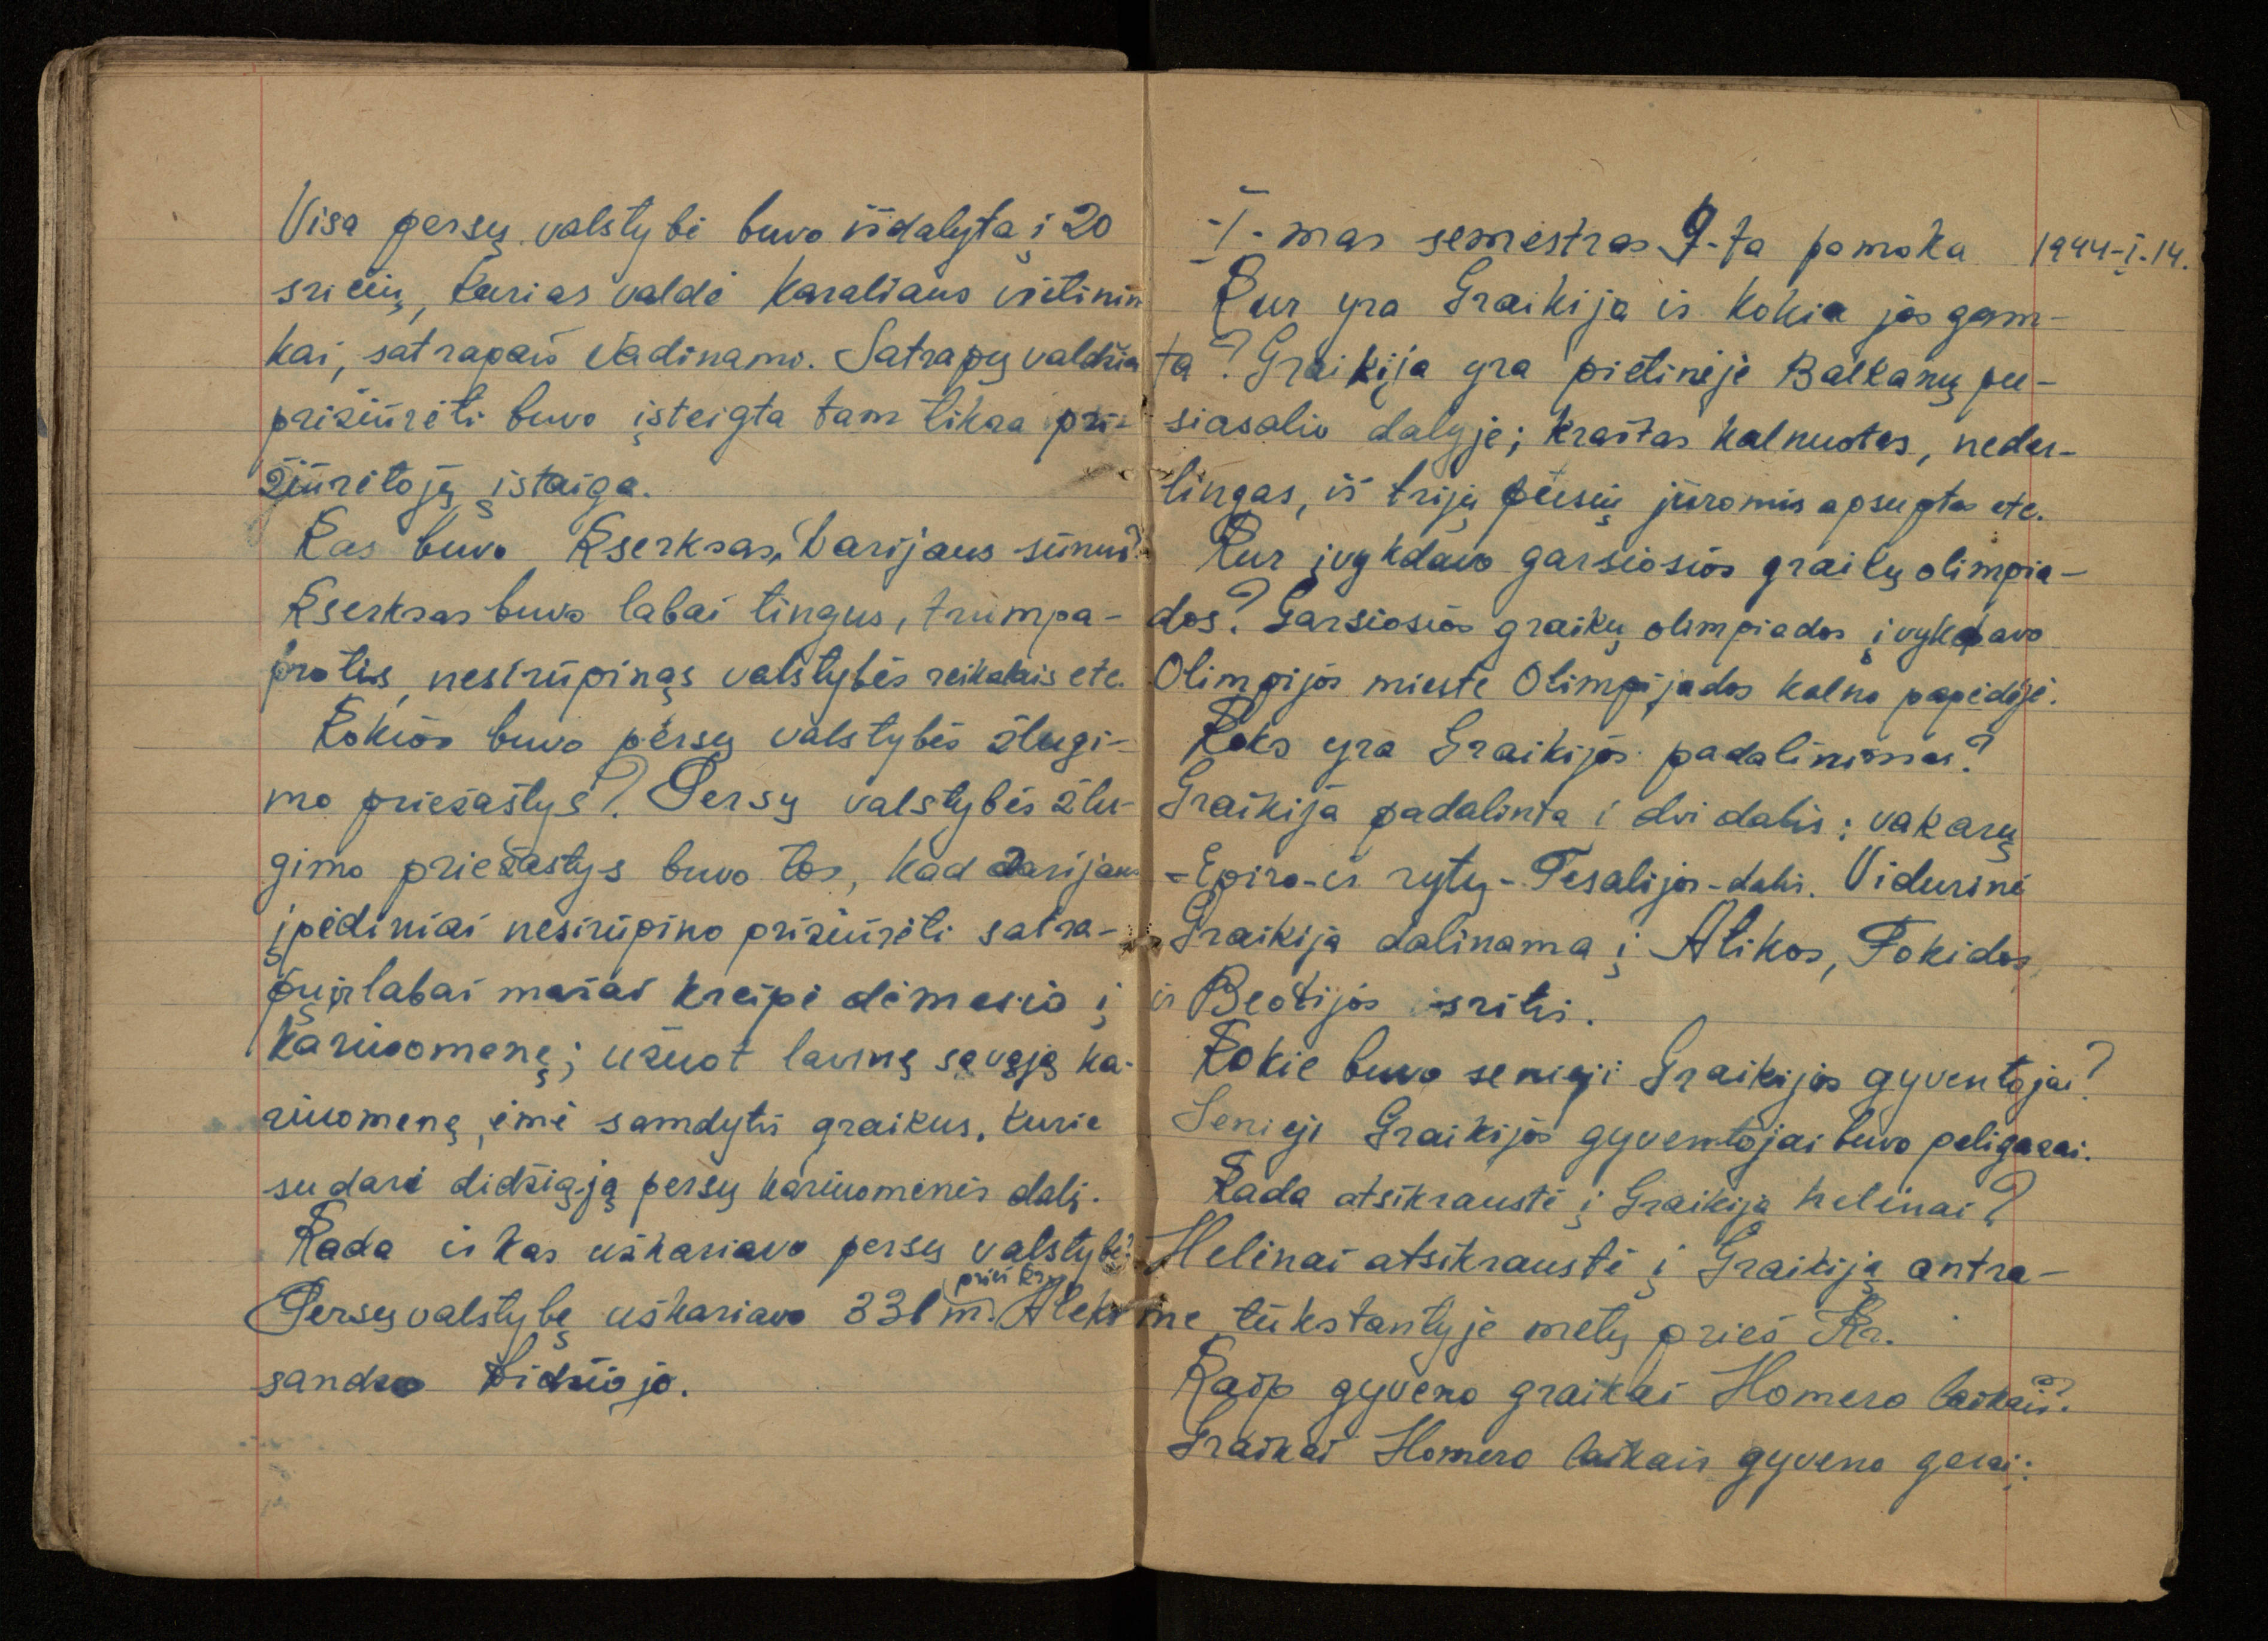 Visa persų valstybė buvo išdalyta į 20
sričių, kurias valdė karaliaus vietinin
kai, satrapais vadinami. Satrapų valdžia
prižiūrėti buvo įsteigta tam tikra pri-
žiūrėtojų įstaiga.
Kas buvo Kserksas, Darijaus sūnus?
Kserksas buvo labai tingus, trumpa-
protis, nesirūpinąs valstybės reikalais etc.
Kokios buvo persų valstybės žlugi-
mo priežastys? Persų valstybės žlu-
gimo priežastys buvo tos, kad Darijaus
įpėdiniai nesirūpino prižiūrėti satra-
pų ir labai mažai kreipė dėmesio į
kariuomenę; užuot lavinę savąją ka-
riuomenę, ėmė samdytis graikus, kurie
sudarė didžiąją persų kariuomenės dalį.
Kada ir kas užkariavo persų valstybę?
prieš Kr.
Persų valstybę užkariavo 331 m. Alek
sandro Didžiojo.
I-mas semestras 9-ta pamoka 1944-I-14.
Kur yra Graikija ir kokia jos gam-
ta? Graikija yra pietinėje Balkanų pu-
siasalio dalyje; kraštas kalnuotas, neder-
lingas, iš trijų pusių jūromis apsuptas etc.
Kur įvykdavo garsiosios graikų olimpia-
dos? Garsiosios graikų olimpiados įvykdavo
Olimpijos mieste Olimpijados kalno papėdėje.
Koks yra Graikijos padalinimas?
Graikija padalinta i dvi dalis: vakarų
-Epiro-ir rytų-Tesalijos-dalis. Vidurinė
Graikija dalinama į Atikos, Fokidos
ir Beotijos sritis.
Kokie buvo senieji Graikijos gyventojai?
Senieji Graikijos gyventojai buvo peligazai.
Kada atsikraustė į Graikija helėnai?
Helėnai atsikraustė į Graikiją antra-
me tūkstantyje metų prieš Kr.
Kaip gyveno graikai Homero laikais?
Graikai Homero laikais gyveno gerai;